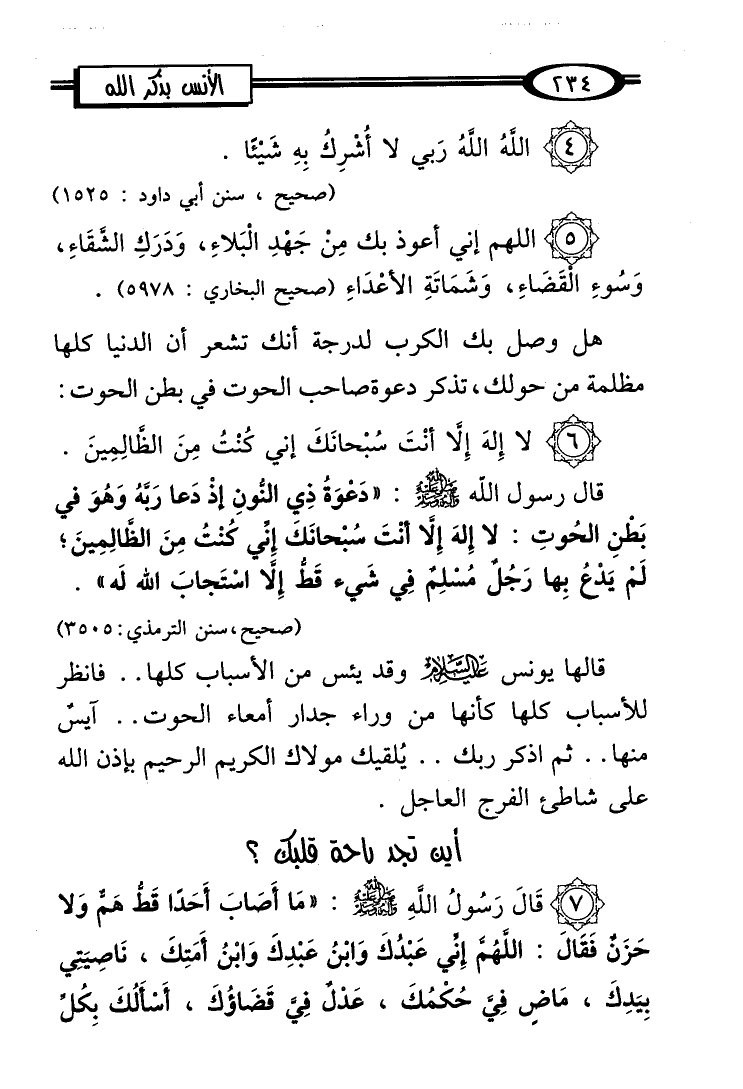 الأنس بذكر الله
٢٣٤
٤ اللَّهُ اللَّهُ رَبي لا أُشْرِكُ بِهِ شَيْئًا .
(صحيح ، سنن أبي داود : ١٥٢٥)
٥ اللهم إني أعوذ بك مِنْ جَهْدِ الْبَلاءِ، وَدَرَكِ الشَّقَاءِ،
وَسُوءِ الْقَضَاءِ، وَشَمَاتَةِ الأعْدَاءِ (صحيح البخاري : ٥٩٧٨) .
هل وصل بك الكرب لدرجة أنك تشعر أن الدنيا كلها
مظلمة من حولك، تذكر دعوة صاحب الحوت في بطن الحوت :
٦ لا إِلهَ إِلَّا أنْتَ سُبْحانَكَ إني كُنْتُ مِنَ الظَّالِمِينَ .
قال رسول اللّه ﷺ : «دَعْوَةُ ذِي النُّونِ إذْ دَعا رَبَّهُ وَهُوَ في
بَطْنِ الحُوتِ : لا إلهَ إِلَّا أنْتَ سُبْحانَكَ إِنِّي كُنْتُ مِنَ الظَّالِمِينَ؛
لَمْ يَدْعُ بِها رَجُلٌ مُسْلِمٌ فِي شَيء قَطُّ إِلَّا اسْتَجابَ الله لَه» .
(صحيح،سنن الترمذي:٣٥٠٥)
قالها يونس عليه السلام وقد يئس من الأسباب كلها.. فانظر
للأسباب كلها كأنها من وراء جدار أمعاء الحوت.. آيسٌ
منها.. ثم اذكر ربك .. يُلقيك مولاك الكريم الرحيم بإذن الله
على شاطئ الفرج العاجل .
أين تجد راحة قلبك ؟
٧ قَالَ رَسُولُ اللَّهِ ﷺ : «مَا أَصَابَ أَحَدًا قَطُّ هَمٌّ وَلا
حَزَنٌ فَقَالَ : اللَّهُمَّ إِنِّي عَبْدُكَ وَابْنُ عَبْدِكَ وَابْنُ أَمَتِكَ ، نَاصِيَتِي
بِيَدِكَ ، مَاضٍ فِيَّ حُكْمُكَ ، عَدْلٌ فِيَّ قَضَاؤُكَ ، أَسْأَلُكَ بِكُلِّ